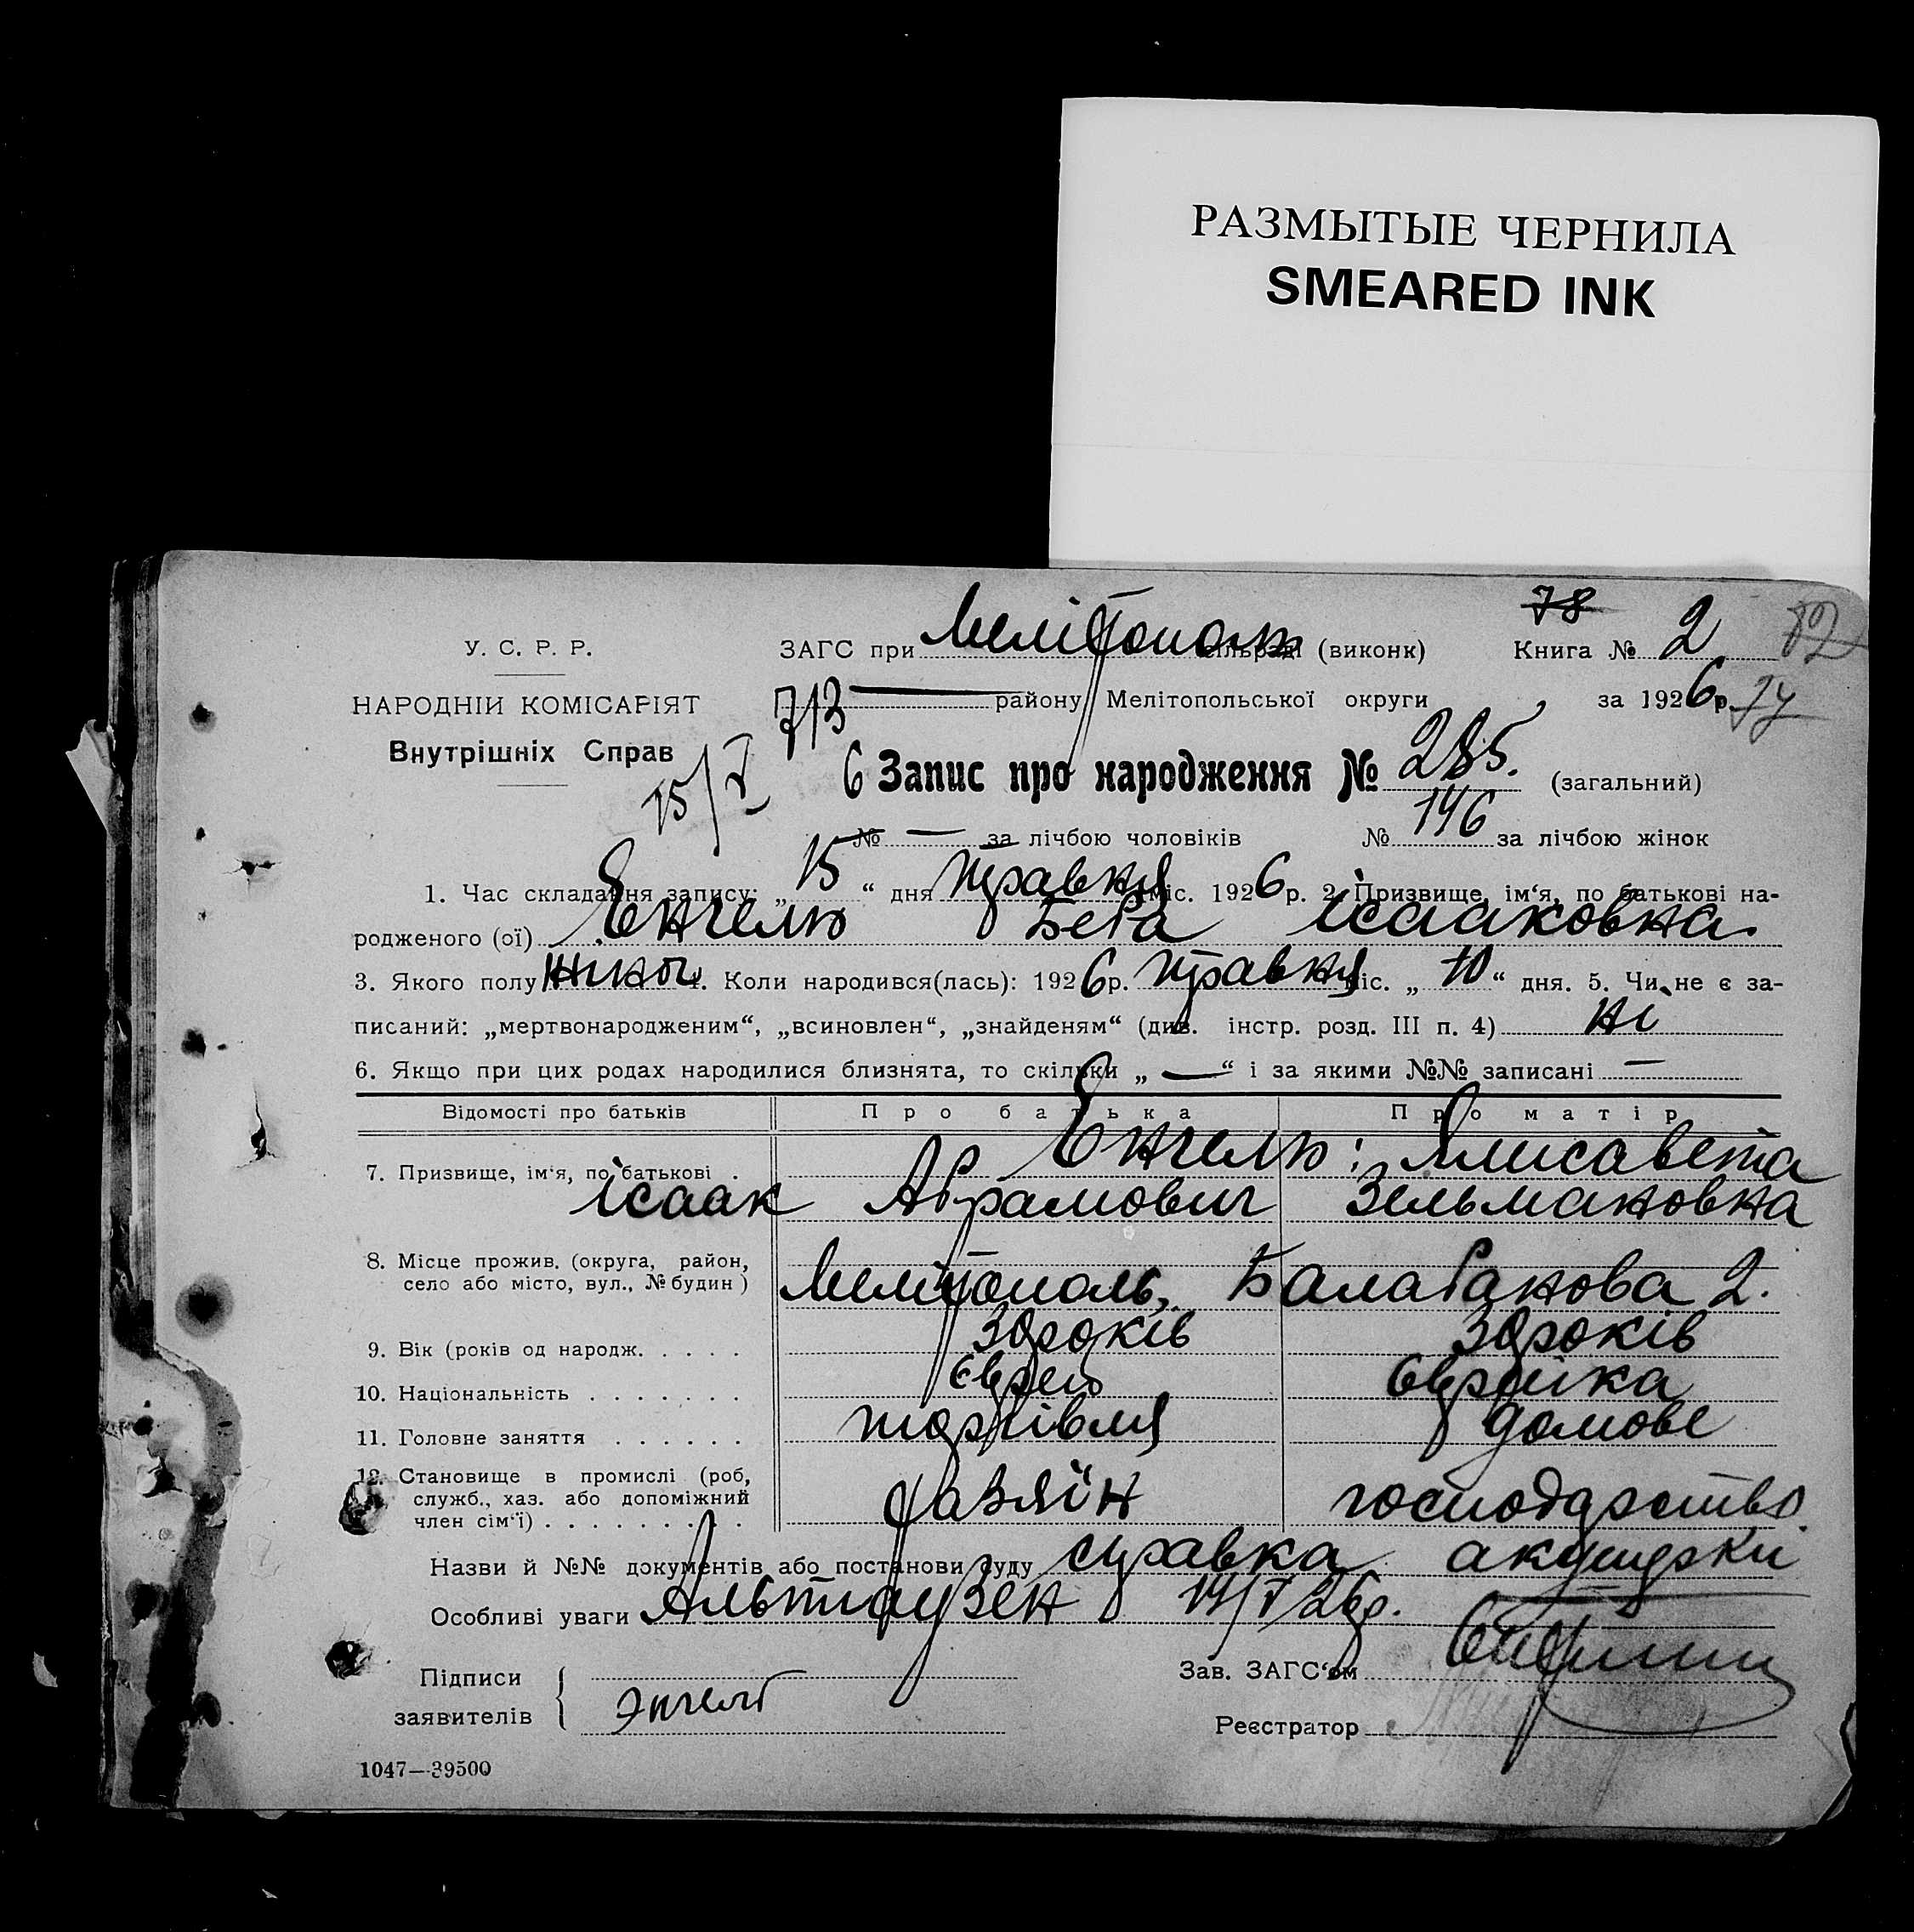 РАЗМЫТЫЕ ЧЕРНИЛА
SMEARED INK
78
У. С. Р. Р. ЗАГС при Мелітополь (виконк) Книга № 2 82
НАРОДНІЙ КОМІСАРІЯТ 713 — району Мелітопольської округи, за 1926 р. 74
Внутрішніх Справ
15/V 6 Запис про народження № 285. (загальний)
№ — за лічбою чоловіків № 146 за лічбою жінок
1. Час складання запису: „15“ дня травня міс. 1926 р. 2. Призвище, ім‘я, по батькові на-
родженого (ої) Енгель Бета Ісааковна.
3. Якого полу жіноч. 4. Коли народився(лась): 1926 р. травня міс. „10“ дня. 5. Чи не є за-
писаний: „мертвонародженим“, „всиновлен“, „знайденям“ (див. інстр. розд. III п. 4) ні
6. Якщо при цих родах народилися близнята, то скільки „—“ і за якими №№ записані —
Відомості про батьків Про батька Про матір
Енгель: Єлисавета
7. Призвище, ім‘я, по батькові .
Ісаак Абрамович Зельмановна
8. Місце прожив. (округа, район,
село або місто, вул., № будин) Мелітополь, Балабанова 2.
9. Вік (років од народж. . . . . 30 років 30 років
10. Національність . . . . . . . Єврей Єврейка
11. Головне заняття . . . . . . торгівля домове
12. Становище в промислі (роб,
служб., хаз. або допоміжний хазяїн господарство.
член сім‘ї) . . . . . . . . .
Назви й №№ документів або постанови суду справка акушерки
Особливі уваги Альтгаузен 14/V 26 р.
Підписи Зав. ЗАГС‘ом
заявителів Энгель
Реєстратор
1047—39500